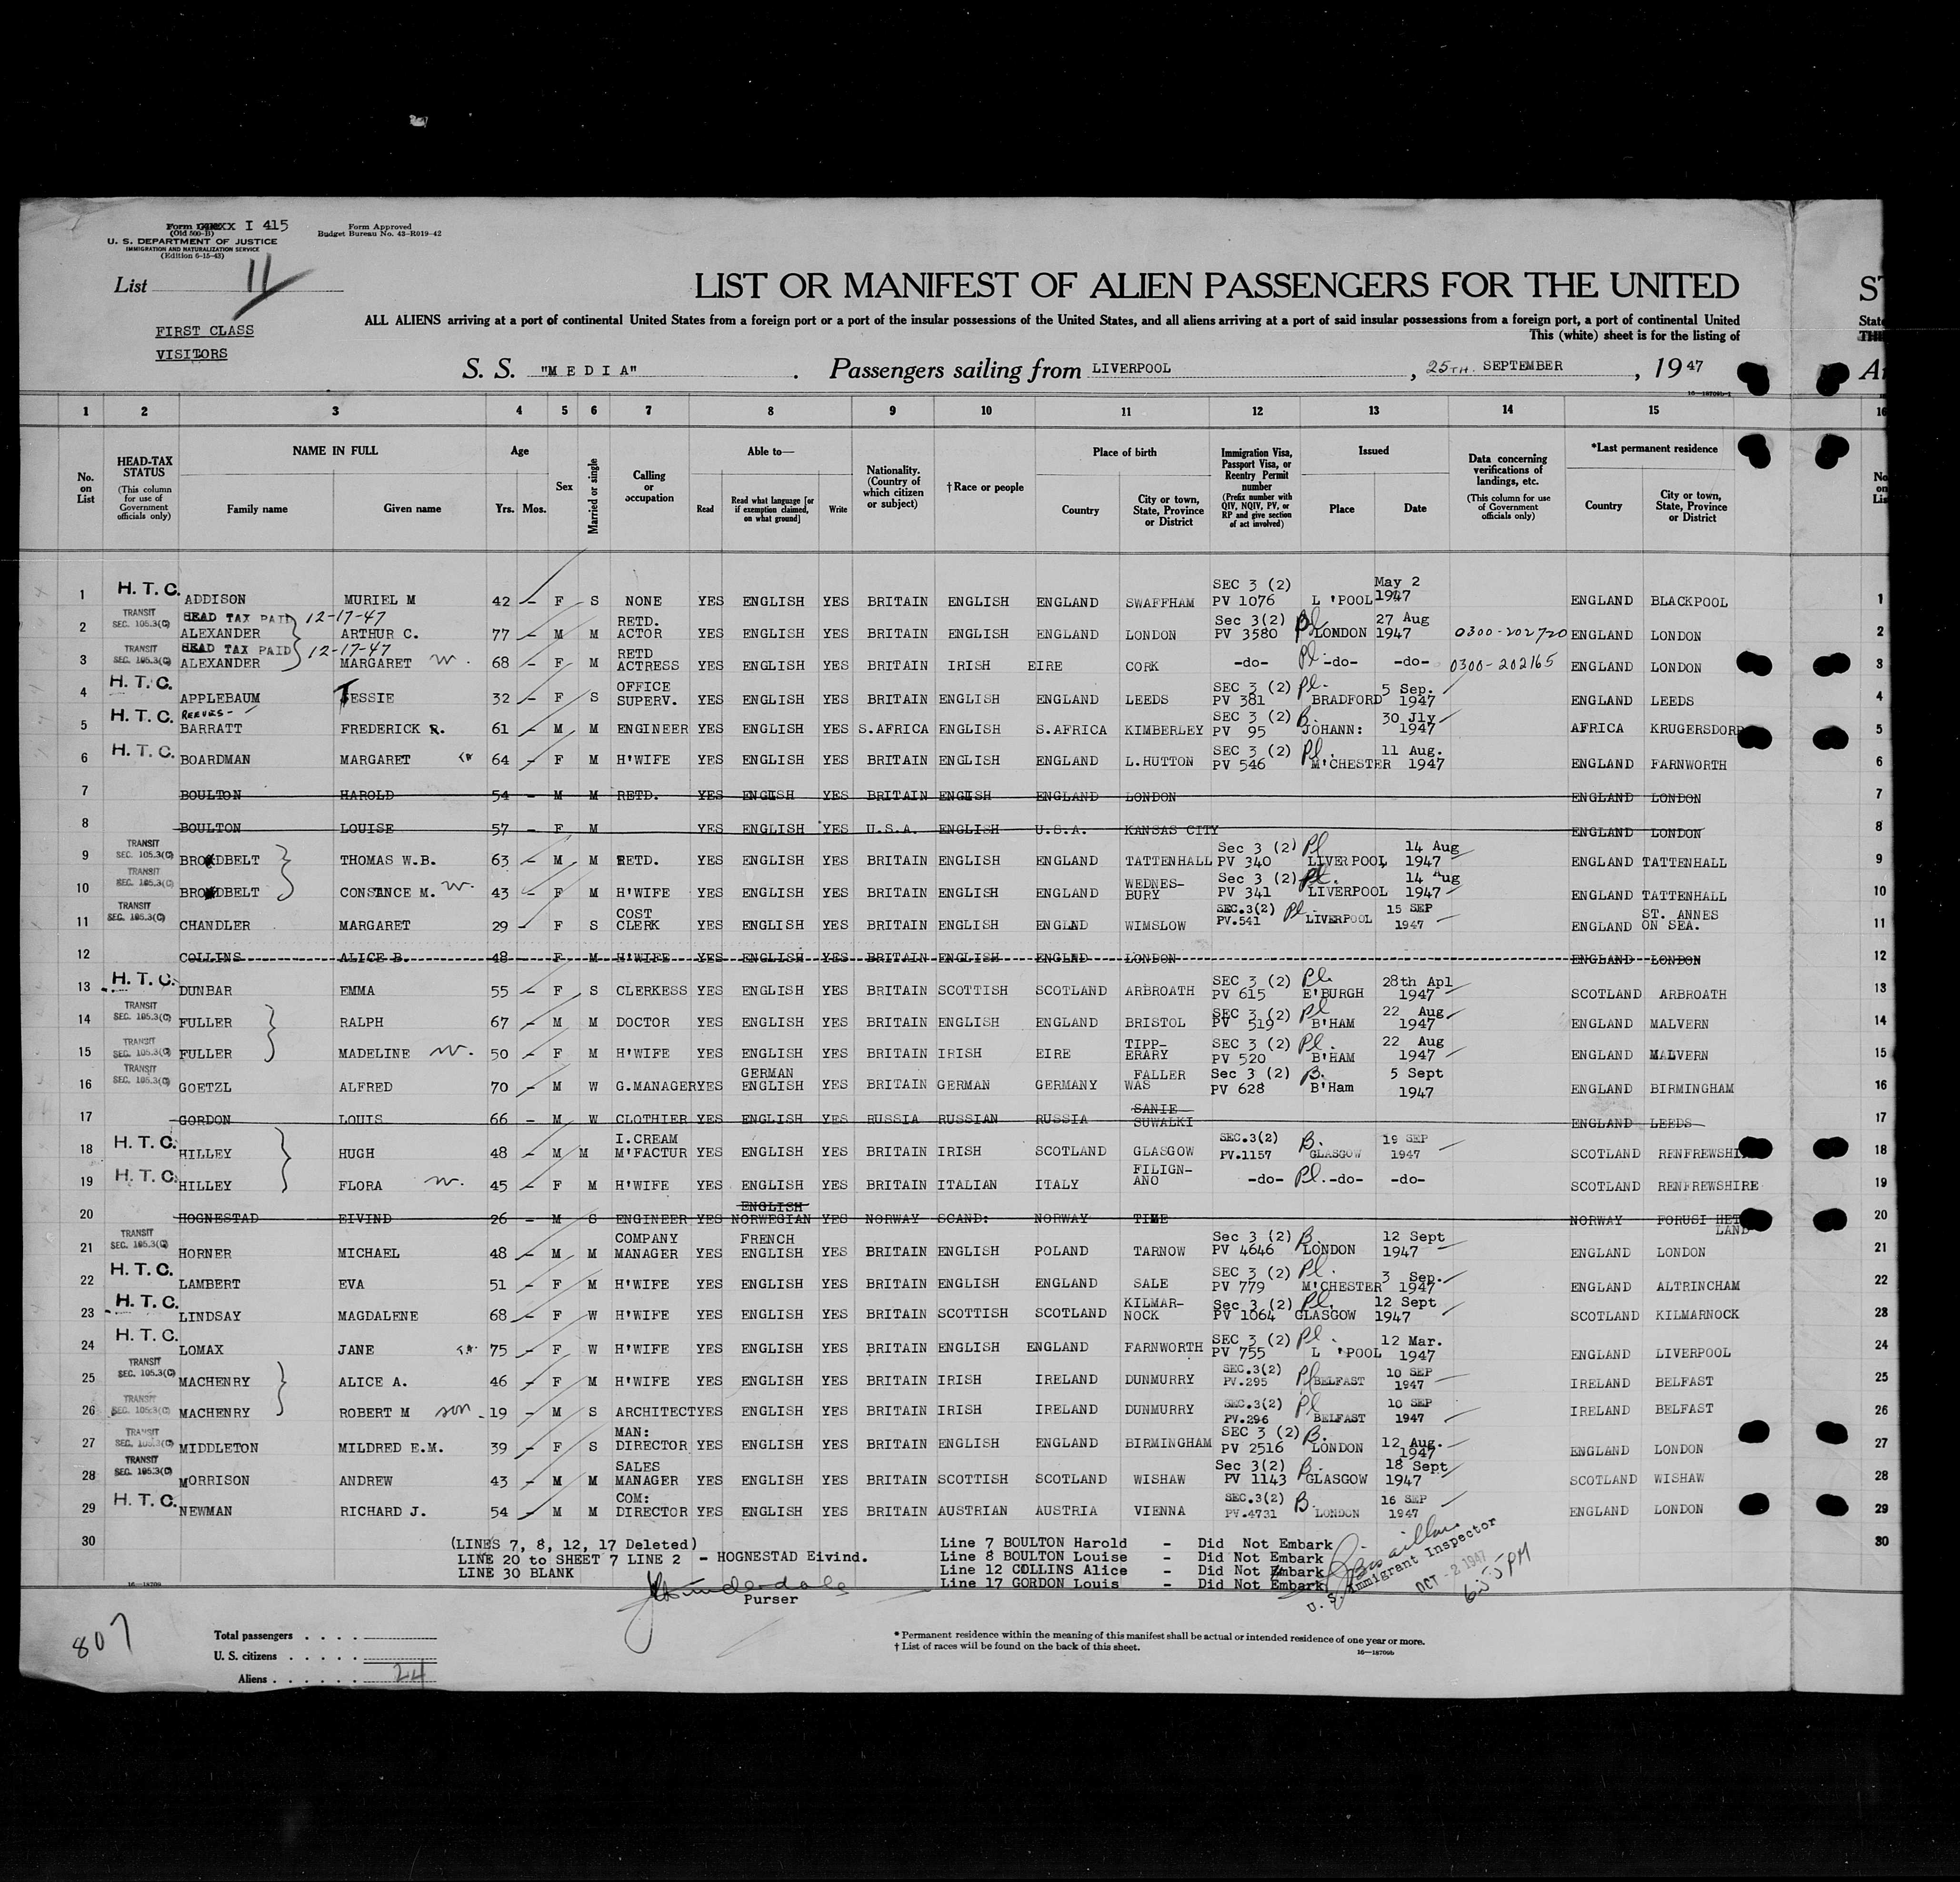 Form I 415
(Old 500-B)
U. S. DEPARTMENT OF JUSTICE
IMMIGRATION AND NATURALIZATION SERVICE
(Edition 6-15-43)
Form Approved
Budget Bureau No. 43-R019-42
List 11
FIRST CLASS
VISITORS
LIST OR MANIFEST OF ALIEN PASSENGERS FOR THE UNITED
ALL ALIENS arriving at a port of continental United States from a foreign port or a port of the insular possessions of the United States, and all aliens arriving at a port of said insular possessions from a foreign port, a port of continental United
This (white) sheet is for the listing of
S. S. "M E D I A" . Passengers sailing from LIVERPOOL , 25TH. SEPTEMBER , 19 47
1 2 3 4 5 6 7 8 9 10 11 12 13 14 15 16
No. on List
HEAD-TAX STATUS (This column for use of Government officials only)
NAME IN FULL Family name Given name
Age Yrs. Mos.
Sex
Married or single
Calling or occupation
Able to— Read Read what language [or if exemption claimed, on what ground] Write
Nationality. (Country of which citizen or subject)
†Race or people
Place of birth Country City or town, State, Province or District
Immigration Visa, Passport Visa, or Reentry Permit number (Prefix number with QIV, NQIV, PV, or RP and give section of act involved)
Issued Place Date
Data concerning verifications of landings, etc. (This column for use of Government officials only)
*Last permanent residence Country City or town, State, Province or District
1 H. T. C. ADDISON MURIEL M 42 – F S NONE YES ENGLISH YES BRITAIN ENGLISH ENGLAND SWAFFHAM SEC 3 (2) PV 1076 L 'POOL May 2 1947 ENGLAND BLACKPOOL 1
2 TRANSIT SEC. 105.3(C) HEAD TAX PAID 12-17-47 ALEXANDER ARTHUR C. 77 – M M RETD. ACTOR YES ENGLISH YES BRITAIN ENGLISH ENGLAND LONDON Sec 3(2) PV 3580 Pl LONDON 27 Aug 1947 0300-202720 ENGLAND LONDON 2
3 TRANSIT SEC. 105.3(C) HEAD TAX PAID 12-17-47 ALEXANDER MARGARET w. 68 – F M RETD ACTRESS YES ENGLISH YES BRITAIN IRISH EIRE CORK -do- Pl. -do- -do- 0300-202165 ENGLAND LONDON 3
4 H. T. C. APPLEBAUM TESSIE 32 – F S OFFICE SUPERV. YES ENGLISH YES BRITAIN ENGLISH ENGLAND LEEDS SEC 3 (2) PV 381 Pl. BRADFORD 5 Sep. 1947 ENGLAND LEEDS 4
5 H. T. C. REEVES- BARRATT FREDERICK R. 61 – M M ENGINEER YES ENGLISH YES S.AFRICA ENGLISH S.AFRICA KIMBERLEY SEC 3 (2) PV 95 B. JOHANN: 30 Jly 1947 AFRICA KRUGERSDORP 5
6 H. T. C. BOARDMAN MARGARET 64 – F M H'WIFE YES ENGLISH YES BRITAIN ENGLISH ENGLAND L.HUTTON SEC 3 (2) PV 546 Pl. M'CHESTER 11 Aug. 1947 ENGLAND FARNWORTH 6
7 BOULTON HAROLD 54 – M M RETD. YES ENGLISH YES BRITAIN ENGLISH ENGLAND LONDON ENGLAND LONDON 7
8 BOULTON LOUISE 57 – F M YES ENGLISH YES U.S.A. ENGLISH U.S.A. KANSAS CITY ENGLAND LONDON 8
9 TRANSIT SEC. 105.3(C) BROADBELT THOMAS W.B. 63 – M M RETD. YES ENGLISH YES BRITAIN ENGLISH ENGLAND TATTENHALL Sec 3 (2) PV 340 Pl LIVERPOOL 14 Aug 1947 ENGLAND TATTENHALL 9
10 TRANSIT SEC. 105.3(C) BROADBELT CONSTANCE M. w. 43 – F M H'WIFE YES ENGLISH YES BRITAIN ENGLISH ENGLAND WEDNES-BURY Sec 3 (2) PV 341 Pl. LIVERPOOL 14 Aug 1947 ENGLAND TATTENHALL 10
11 TRANSIT SEC. 105.3(C) CHANDLER MARGARET 29 – F S COST CLERK YES ENGLISH YES BRITAIN ENGLISH ENGLND WIMSLOW SEC.3(2) PV.541 Pl LIVERPOOL 15 SEP 1947 ENGLAND ST. ANNES ON SEA. 11
12 COLLINS ALICE B. 48 – F M H'WIFE YES ENGLISH YES BRITAIN ENGLISH ENGLND LONDON ENGLAND LONDON 12
13 H. T. C. DUNBAR EMMA 55 – F S CLERKESS YES ENGLISH YES BRITAIN SCOTTISH SCOTLAND ARBROATH SEC 3 (2) PV 615 Pl. E'BURGH 28th Apl 1947 SCOTLAND ARBROATH 13
14 TRANSIT SEC. 105.3(C) FULLER RALPH 67 – M M DOCTOR YES ENGLISH YES BRITAIN ENGLISH ENGLAND BRISTOL SEC 3 (2) PV 519 Pl B'HAM 22 Aug 1947 ENGLAND MALVERN 14
15 TRANSIT SEC. 105.3(C) FULLER MADELINE w. 50 – F M H'WIFE YES ENGLISH YES BRITAIN IRISH EIRE TIPP-ERARY SEC 3 (2) PV 520 Pl. B'HAM 22 Aug 1947 ENGLAND MALVERN 15
16 TRANSIT SEC. 105.3(C) GOETZL ALFRED 70 – M W G.MANAGER YES GERMAN ENGLISH YES BRITAIN GERMAN GERMANY FALLER WAS Sec 3 (2) PV 628 B. B'Ham 5 Sept 1947 ENGLAND BIRMINGHAM 16
17 GORDON LOUIS 66 – M W CLOTHIER YES ENGLISH YES RUSSIA RUSSIAN RUSSIA SANIE SUWALKI ENGLAND LEEDS 17
18 H. T. C. HILLEY HUGH 48 – M M I.CREAM M'FACTUR YES ENGLISH YES BRITAIN IRISH SCOTLAND GLASGOW SEC.3(2) PV.1157 B. GLASGOW 19 SEP 1947 SCOTLAND RENFREWSHI 18
19 H. T. C. HILLEY FLORA w. 45 – F M H'WIFE YES ENGLISH YES BRITAIN ITALIAN ITALY FILIGN-ANO -do- Pl. -do- -do- SCOTLAND RENFREWSHIRE 19
20 HOGNESTAD EIVIND 26 – M S ENGINEER YES ENGLISH NORWEGIAN YES NORWAY SCAND: NORWAY TIME NORWAY FORUSI HET LAND 20
21 TRANSIT SEC. 105.3(C) HORNER MICHAEL 48 – M M COMPANY MANAGER YES FRENCH ENGLISH YES BRITAIN ENGLISH POLAND TARNOW Sec 3 (2) PV 4646 B. LONDON 12 Sept 1947 ENGLAND LONDON 21
22 H. T. C. LAMBERT EVA 51 – F M H'WIFE YES ENGLISH YES BRITAIN ENGLISH ENGLAND SALE SEC 3 (2) PV 779 Pl. M'CHESTER 3 Sep. 1947 ENGLAND ALTRINCHAM 22
23 H. T. C. LINDSAY MAGDALENE 68 – F W H'WIFE YES ENGLISH YES BRITAIN SCOTTISH SCOTLAND KILMAR-NOCK Sec 3 (2) PV 1064 Pl. GLASGOW 12 Sept 1947 SCOTLAND KILMARNOCK 23
24 H. T. C. LOMAX JANE 75 – F W H'WIFE YES ENGLISH YES BRITAIN ENGLISH ENGLAND FARNWORTH SEC 3 (2) PV 755 Pl. L 'POOL 12 Mar. 1947 ENGLAND LIVERPOOL 24
25 TRANSIT SEC. 105.3(C) MACHENRY ALICE A. 46 – F M H'WIFE YES ENGLISH YES BRITAIN IRISH IRELAND DUNMURRY SEC.3(2) PV.295 Pl BELFAST 10 SEP 1947 IRELAND BELFAST 25
26 TRANSIT SEC. 105.3(C) MACHENRY ROBERT M son 19 – M S ARCHITECT YES ENGLISH YES BRITAIN IRISH IRELAND DUNMURRY SEC.3(2) PV.296 Pl BELFAST 10 SEP 1947 IRELAND BELFAST 26
27 TRANSIT SEC. 105.3(C) MIDDLETON MILDRED E.M. 39 – F S MAN: DIRECTOR YES ENGLISH YES BRITAIN ENGLISH ENGLAND BIRMINGHAM SEC 3 (2) PV 2516 B. LONDON 12 Aug. 1947 ENGLAND LONDON 27
28 TRANSIT SEC. 105.3(C) MORRISON ANDREW 43 – M M SALES MANAGER YES ENGLISH YES BRITAIN SCOTTISH SCOTLAND WISHAW Sec 3(2) PV 1143 B. GLASGOW 18 Sept 1947 SCOTLAND WISHAW 28
29 H. T. C. NEWMAN RICHARD J. 54 – M M COM: DIRECTOR YES ENGLISH YES BRITAIN AUSTRIAN AUSTRIA VIENNA SEC.3(2) PV.4731 B. LONDON 16 SEP 1947 ENGLAND LONDON 29
30 30
(LINES 7, 8, 12, 17 Deleted)
LINE 20 to SHEET 7 LINE 2 - HOGNESTAD Eivind.
LINE 30 BLANK
Purser
Line 7 BOULTON Harold - Did Not Embark
Line 8 BOULTON Louise - Did Not Embark
Line 12 COLLINS Alice - Did Not Embark
Line 17 GORDON Louis - Did Not Embark
U. S. Immigrant Inspector
OCT - 2 1947
655 PM
16—18709
807
Total passengers . . . .
U. S. citizens . . . . .
Aliens . . . . . . 24
* Permanent residence within the meaning of this manifest shall be actual or intended residence of one year or more.
† List of races will be found on the back of this sheet.
16—18709b